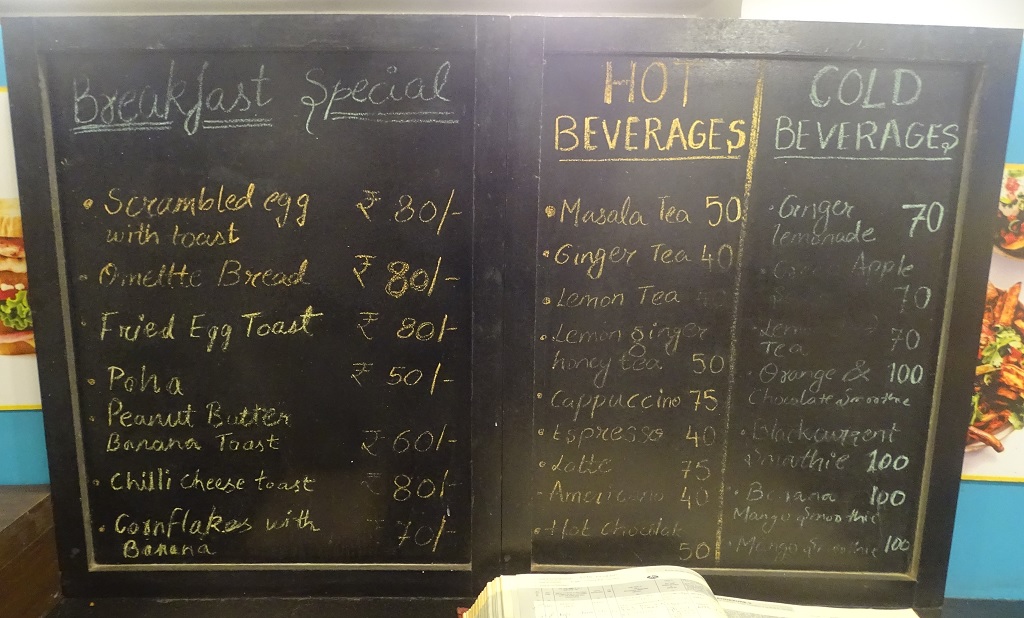 Breakfast Special
• Scrambled egg ₹ 80/-
with toast
• Omeltte Bread ₹ 80/-
• Fried Egg Toast ₹ 80/-
• Poha ₹ 50/-
• Peanut Butter
Banana Toast ₹ 60/-
• Chilli cheese toast ₹ 80/-
• Cornflakes with ₹ 70/-
Banana
HOT
BEVERAGES
• Masala Tea 50
• Ginger Tea 40
• Lemon Tea
• Lemon ginger
honey tea 50
• Cappuccino 75
• Espresso 40
• Latte 75
• Americano 40
• Hot Chocolate
50
COLD
BEVERAGES
• Ginger 70
lemonade
Apple
70
Tea 70
• Orange & 100
Chocolate Smoothie
• Blackcurrent
Smoothie 100
• Banana 100
Mango Smoothie
• Mango Smoothie 100